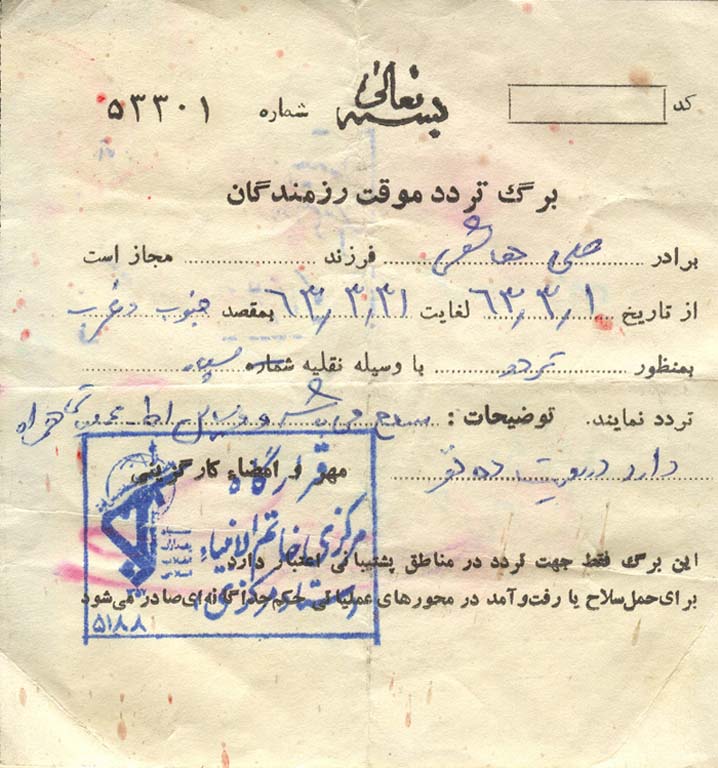 بسمه تعالی
کد
شماره ۵۳۳۰۱
برگ تردد موقت رزمندگان
برادر علی هاشمی فرزند ........ مجاز است
از تاریخ ۶۳٫۳٫۱ لغایت ۶۳٫۳٫۳۱ بمقصد جنوب و غرب
بمنظور تردد با وسیله نقلیه شماره
تردد نمایند. توضیحات : مسلح می باشد و
دارد
مهر و امضاء کارگزینی
این برگ فقط جهت تردد در مناطق پشتیبانی اعتبار دارد
برای حمل سلاح یا رفت و آمد در محورهای عملیاتی حکم جداگانه‌ای صادر می‌شود
قرارگاه
مرکزی خاتم الانبیاء
سپاه پاسداران انقلاب اسلامی
۵۱۸۸